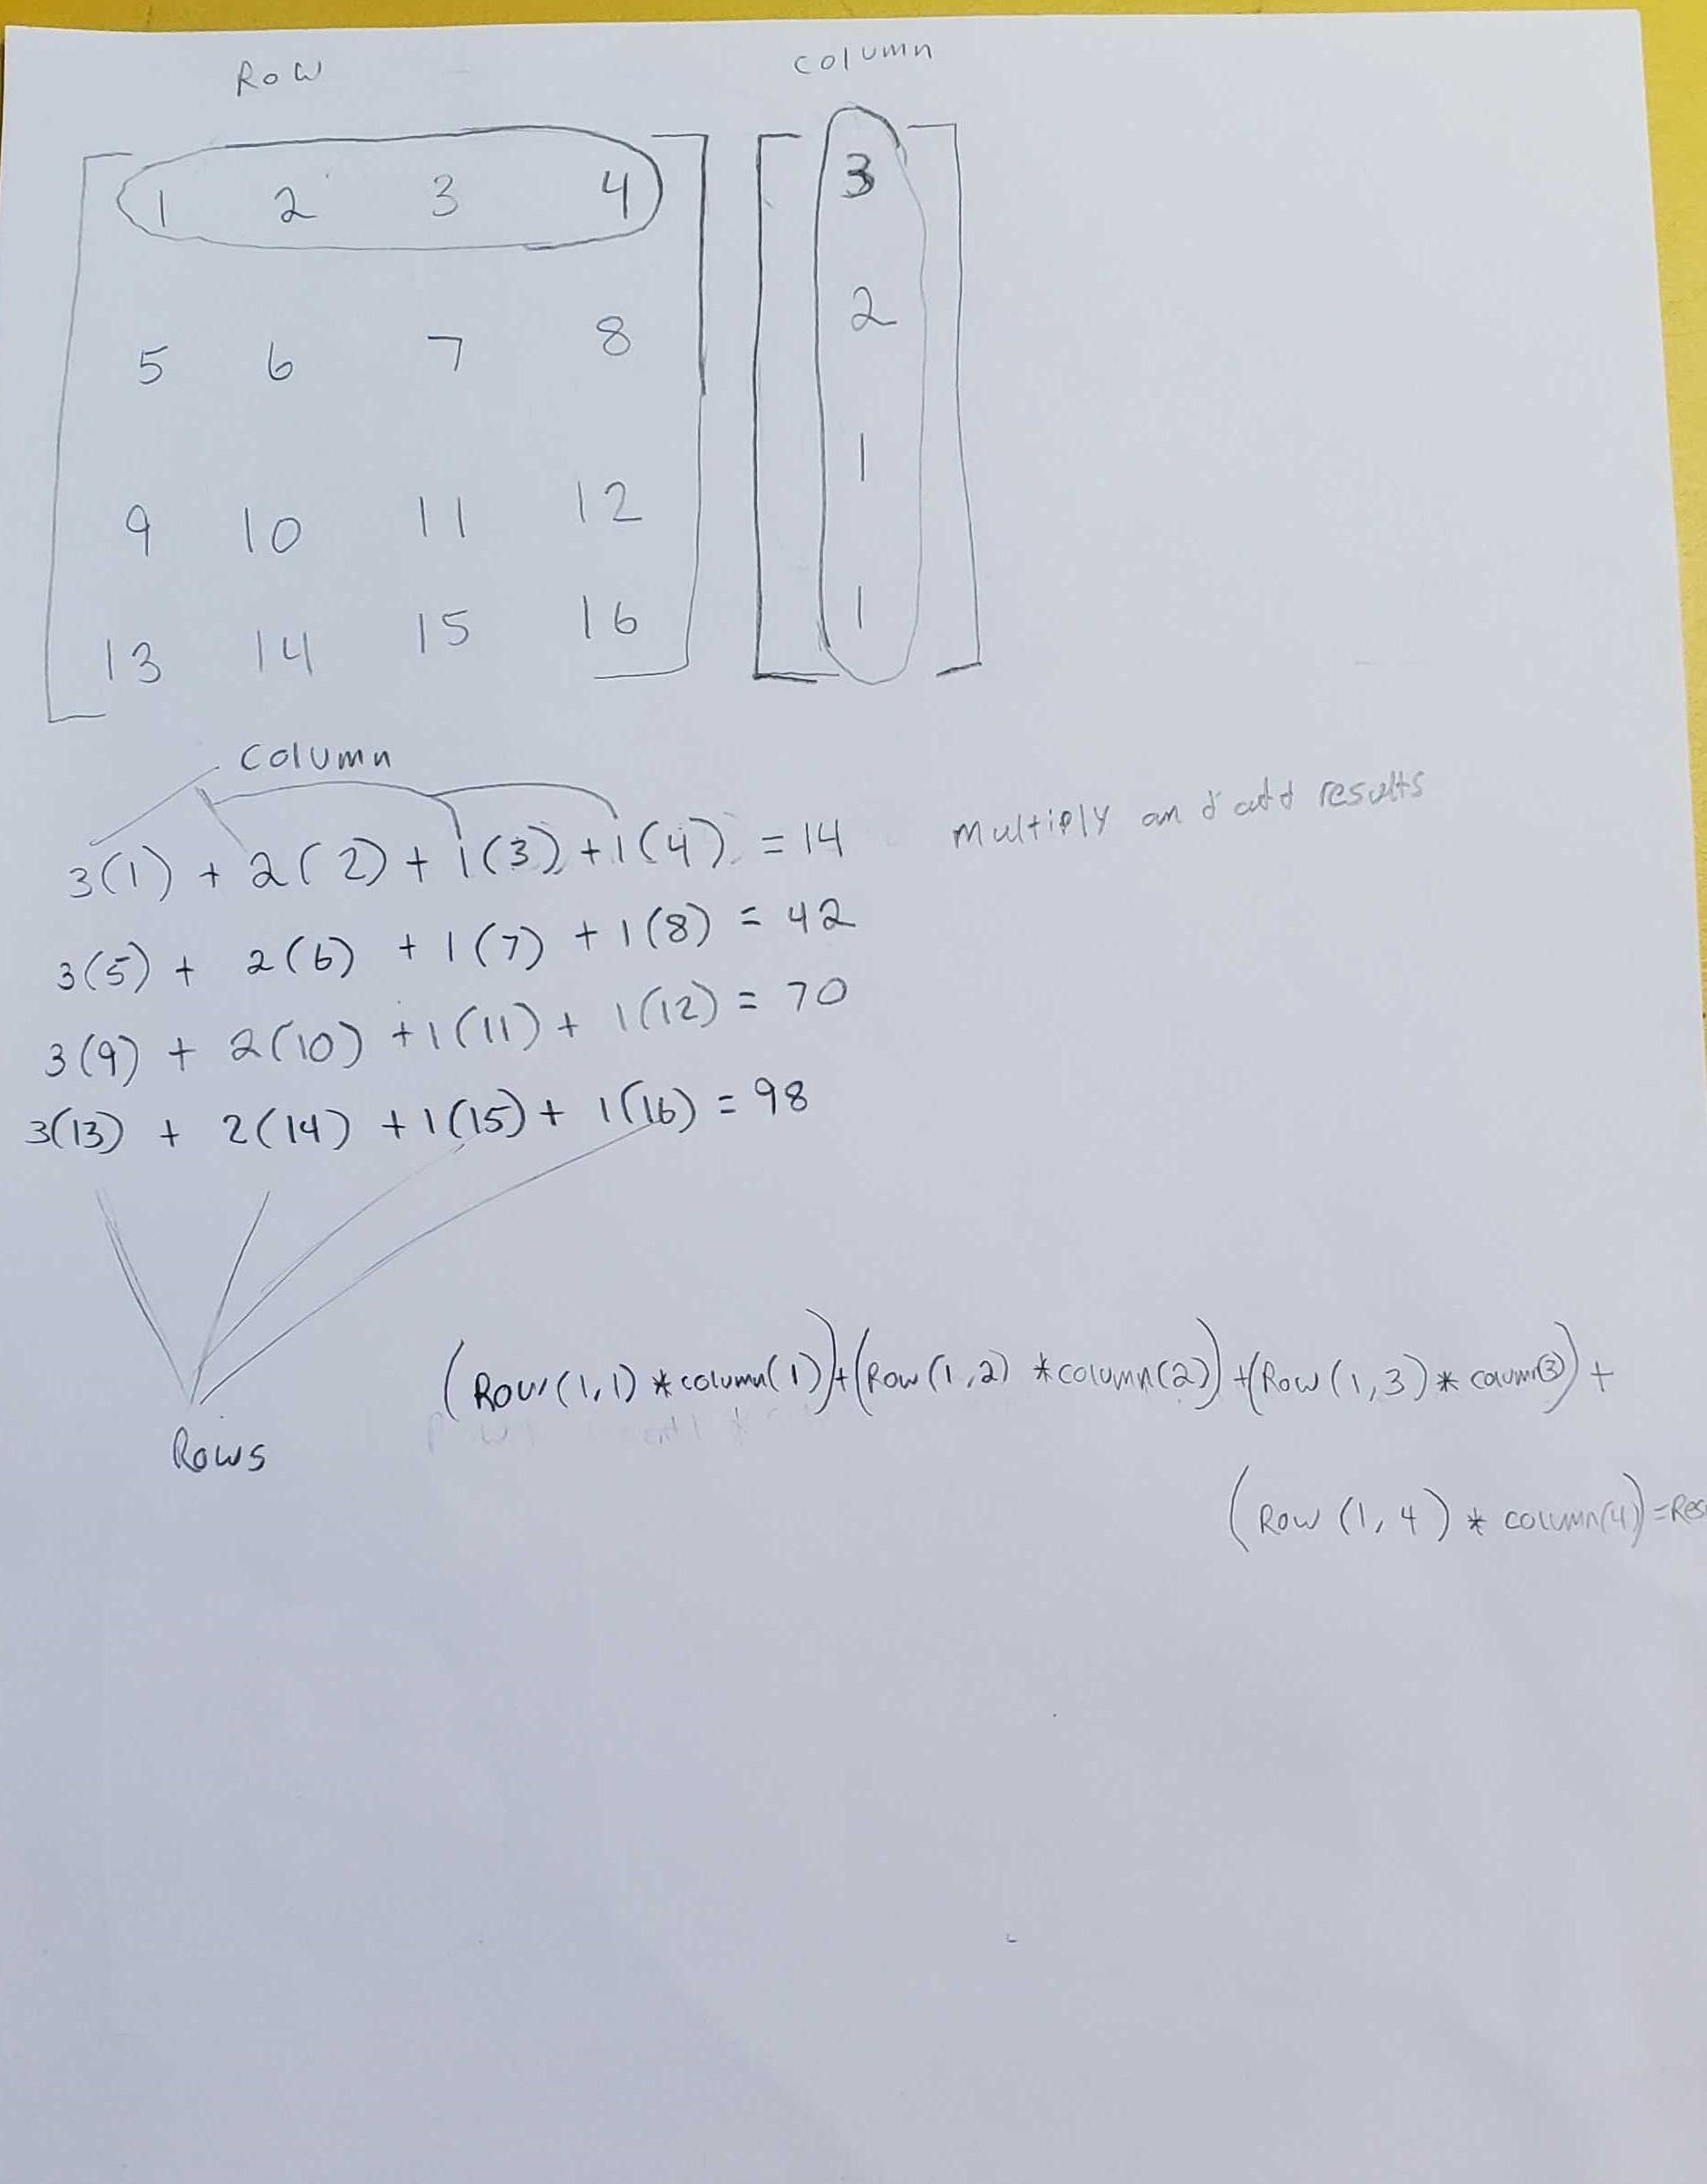 Row column
1 2 3 4 3
5 6 7 8 2
9 10 11 12 1
13 14 15 16 1
column
3(1) + 2(2) + 1(3) + 1(4) = 14 Multiply and add results
3(5) + 2(6) + 1(7) + 1(8) = 42
3(9) + 2(10) + 1(11) + 1(12) = 70
3(13) + 2(14) + 1(15) + 1(16) = 98
(Row(1,1) * column(1)) + (Row(1,2) * column(2)) + (Row(1,3) * coumn(3)) +
Rows
(Row(1,4) * column(4)) = Res